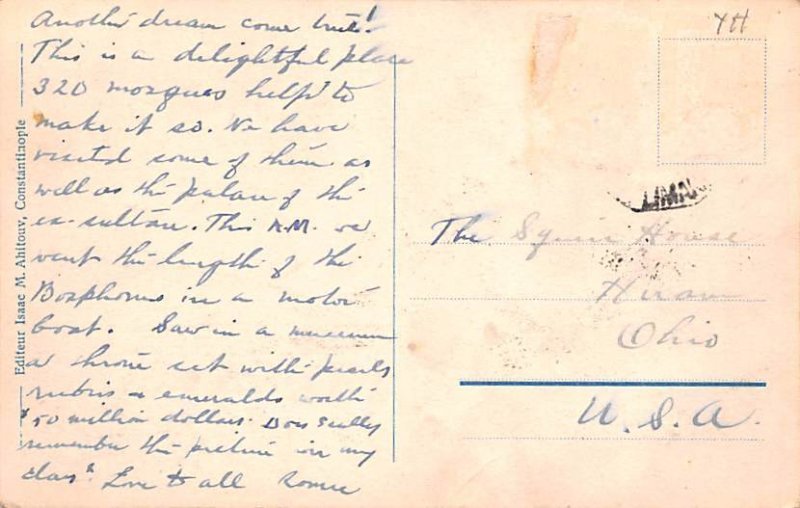 Another dream come true!
This is a delightful place
320 mosques help to
make it so. We have
visited some of them as
well as the palace of the
ex-sultan. This A.M. we
went the length of the
Bosphorus in a motor
boat. Saw in a museum
a throne set with pearls
rubies & emeralds worth
$50 million dollars. Does Sally
remember the picture on my
class? Love to all
Editeur Isaac M. Ahitouv, Constantinople
The Squire House
Hiram
Ohio
U.S.A.